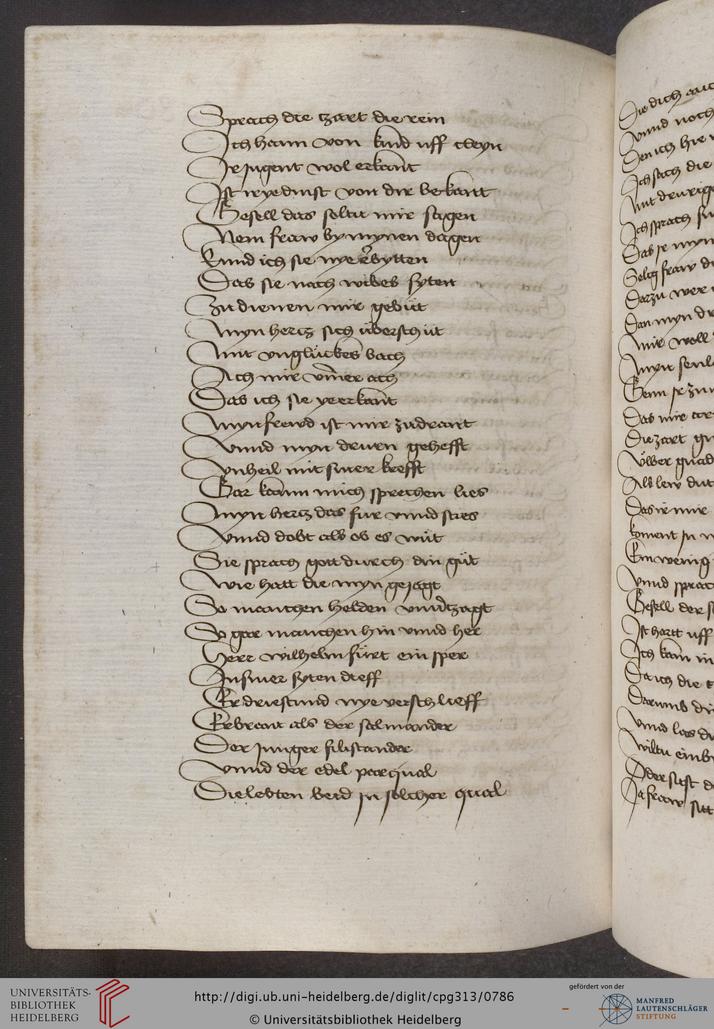 Sprach die zart die rein
Ich hann von kind uff cleyn
Ir jugent wol erkant
Ist ir yedinst von dir bekant
Gesell das soltu mir sagen
Nein fraw by mynen dagen
Kund ich sie nye erbytten
Das sie nach wibes sytten
Zu dienen mir gebüt
Myn hertz sich überschüt
Mit unglückes bach
Ach mir ymer ach
Das ich sie ye erkant
Myn frewd ist mir zudrant
Vnnd myn druren gehefft
Vnheil mit siner krefft
Gar kam mich sprechen lies
Myn hertz das fur vnnd sties
Vnnd dobt als ob es wüt
Sie sprach gott durch din güt
Wie hatt die myn gejagt
So manchen helden vnuerzagt
So gar manchen hin vnnd her
Herr wilhelm fürt ein sper
In siner syten dieff
Er driestund nye verschlieff
Er brant als der salmander
Der junger filistander
Vnnd der edel parqual
Die lebten beid in solcher qual
Die dich
vnnd noch
Den ich hie
Ich sach die
Mit drurige
Ich sprach
Das ir myn
Selig fraw
Darzu wer
Dan myn
Mir woll
Myn
Das mir
Die zart
Vber
Als
Das ir mir
Ein wenig
Vnnd sprach
Gesell der
Ist hartt uff
Ich kam
Da ich die
Darumb
Vnnd las
Wiltu
Oder
Ja fraw
UNIVERSITÄTS-
BIBLIOTHEK
HEIDELBERG
http://digi.ub.uni-heidelberg.de/diglit/cpg313/0786
© Universitätsbibliothek Heidelberg
gefördert von der
MANFRED
LAUTENSCHLÄGER
STIFTUNG